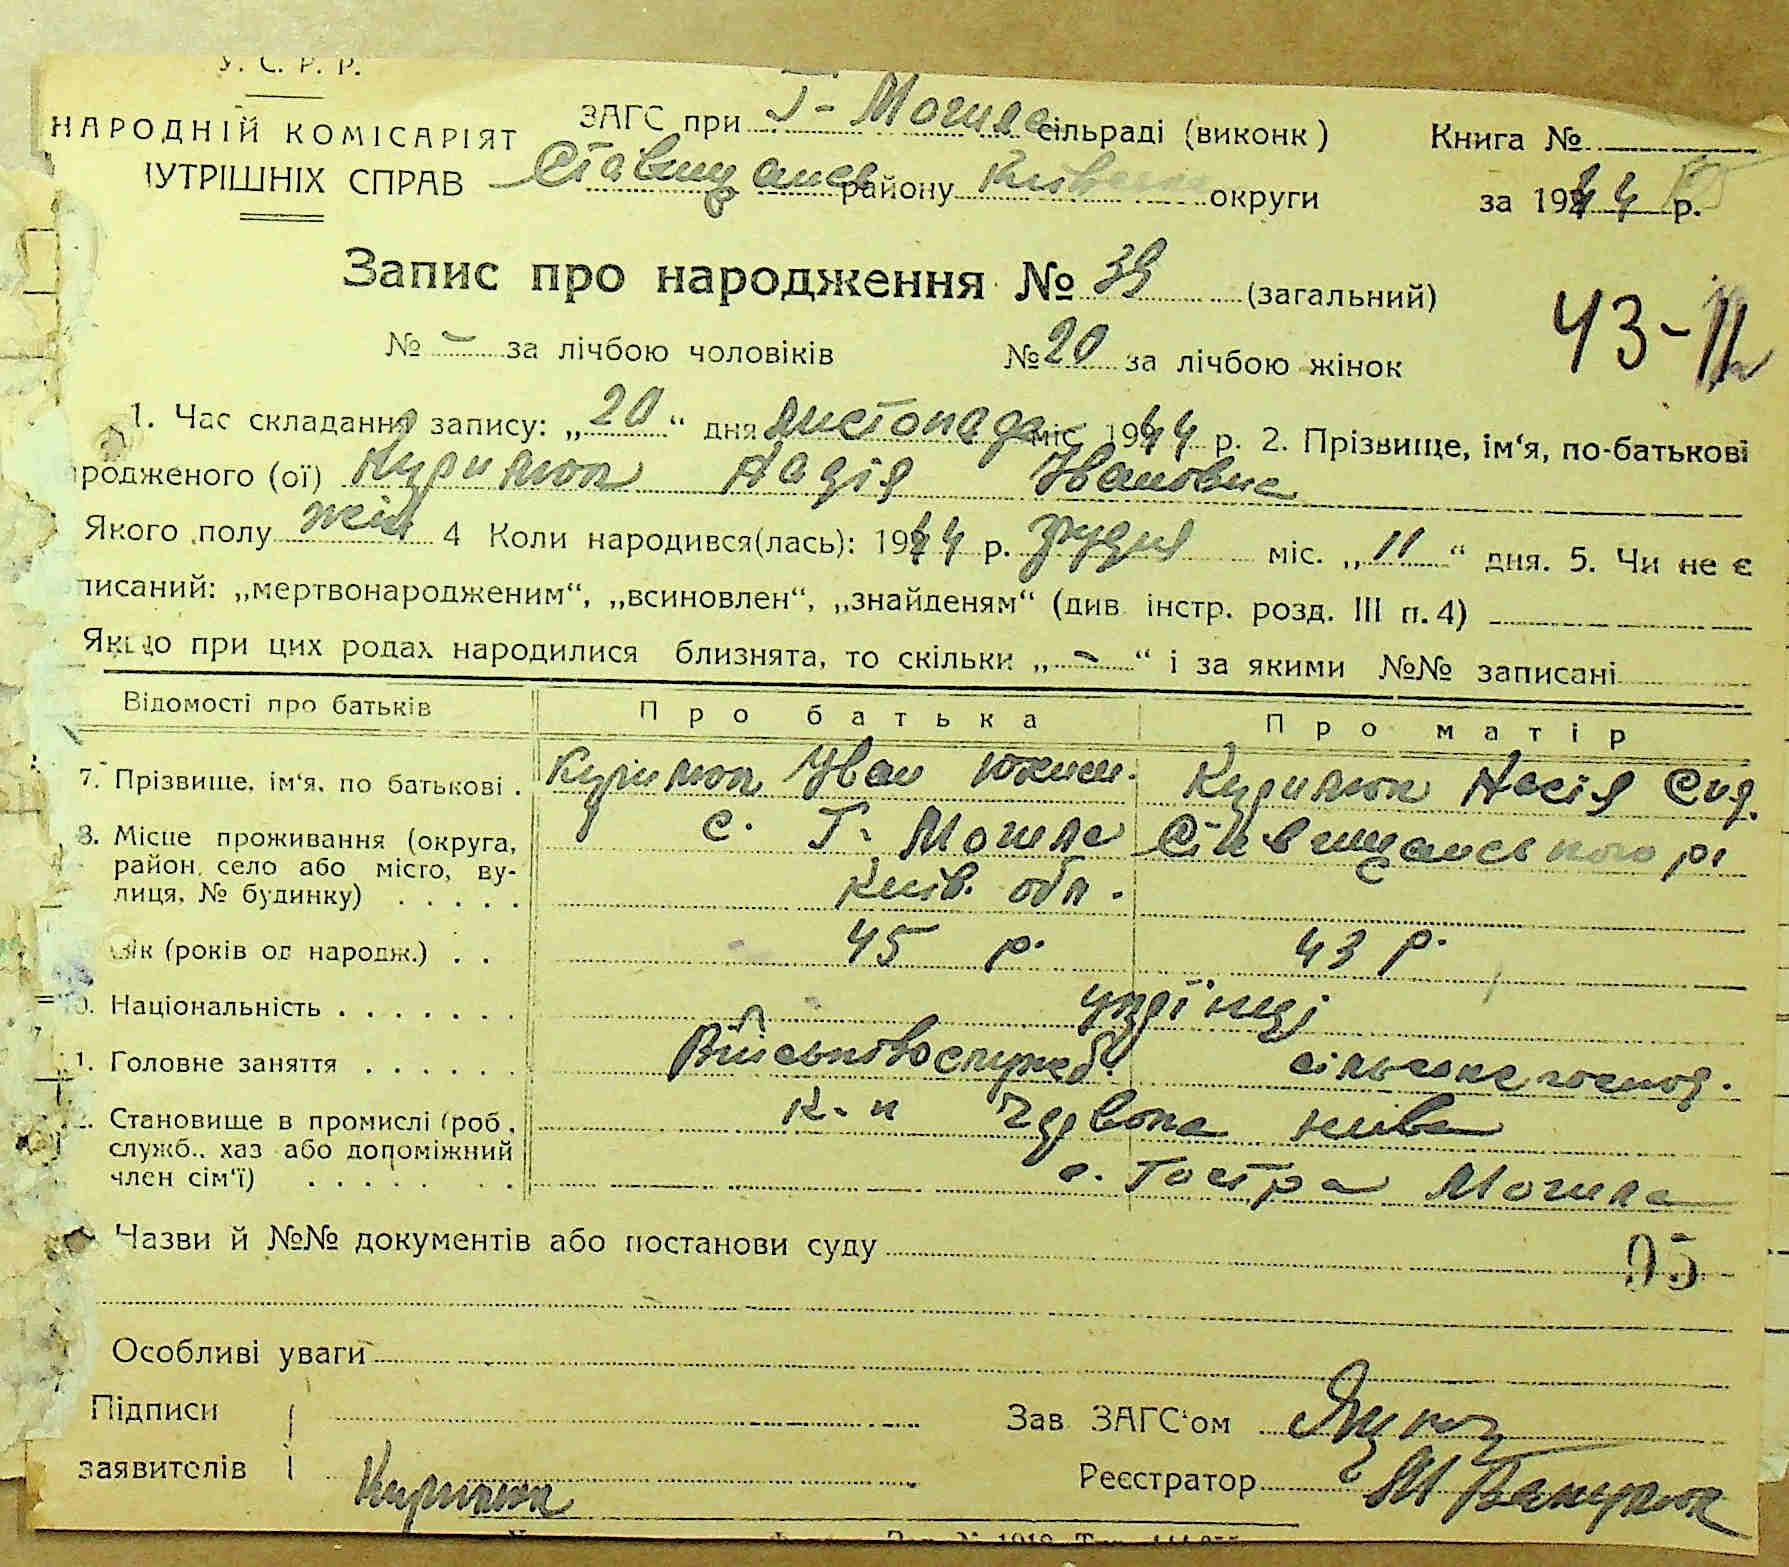 У. С. Р. Р.
НАРОДНІЙ КОМІСАРІЯТ ЗАГС при Г-Могила сільраді (виконк ) Книга №
ІУТРІШНІХ СПРАВ Ставищанськ району Київськ округи за 1944 р.
Запис про народження № 39 (загальний)
43-
№ - за лічбою чоловіків № 20 за лічбою жінок
1. Час складання запису: „20“ дня листопада міс 1944 р. 2. Прізвище, ім‘я, по-батькові
родженого (ої) Надія Івановна
Якого полу жін 4 Коли народився(лась): 1944 р. грудня міс. „11“ дня. 5. Чи не є
писаний: „мертвонародженим“, „всиновлен“, „знайденям“ (див інстр. розд. III п. 4)
Якщо при цих родах народилися близнята, то скільки „-“ і за якими №№ записані
Відомості про батьків Про батька Про матір
7. Прізвище, ім‘я, по батькові . Іван Сид.
8. Місце проживання (округа, с. Г. Могила Ставищанського р
район, село або місто, ву-
лиця, № будинку) . . . . . Київ. обл.
Вік (років од народж.) . . 45 р. 43 р.
0. Національність . . . . . . . українці
1. Головне заняття . . . . . . Військовослужб. сільське господ.
2. Становище в промислі (роб, к-п Червона нива
служб., хаз або допоміжний
член сім‘ї) . . . . . . . с. Гостра Могила
Назви й №№ документів або постанови суду
95
Особливі уваги
Підписи Зав ЗАГС‘ом
заявителів Реєстратор М